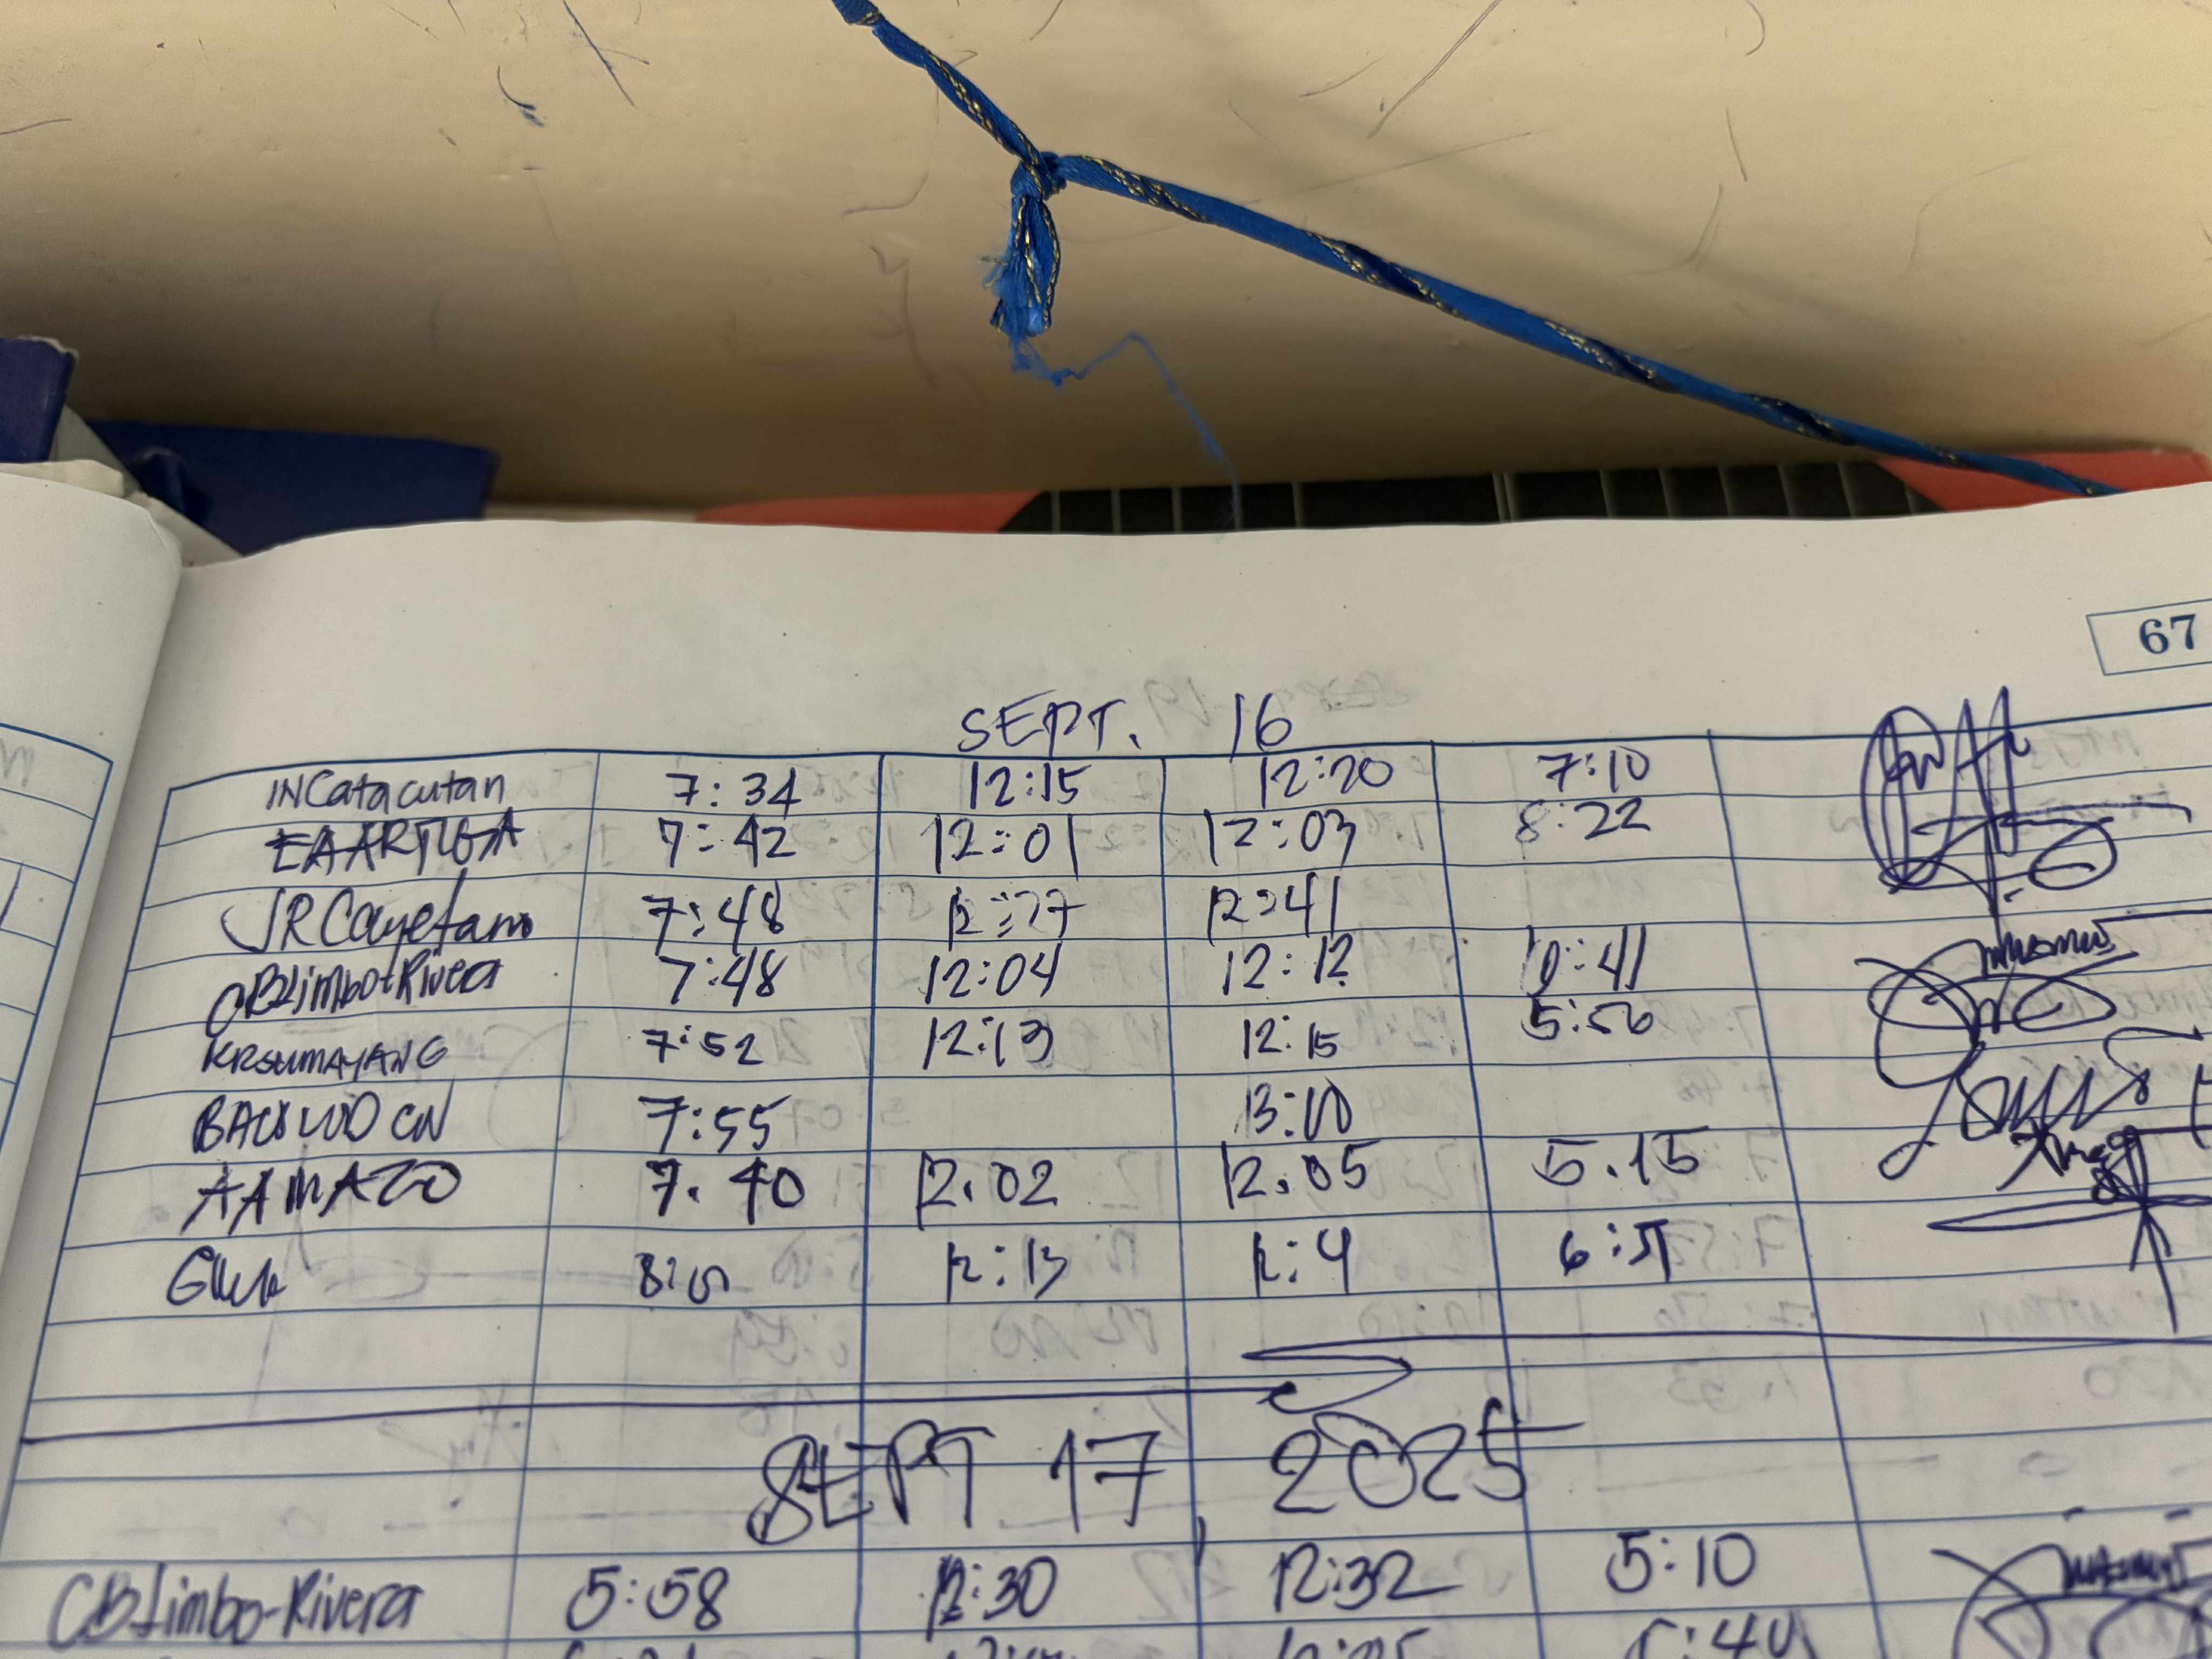 67
SEPT. 16
INCatacutan 7:34 12:15 12:20 7:10
EAARTIGA 7:42 12:01 12:03 8:22
JRCayetano 7:48 12:27 12:41
CBLimbo-Rivera 7:48 12:04 12:12 :41
7:52 12:13 12:15 5:56
7:55 13:00
AAMAZO 7.40 12.02 12.05 5.15
12:13 6:51
SEPT 17, 2025
CBLimbo-Rivera 5:58 12:30 12:32 5:10